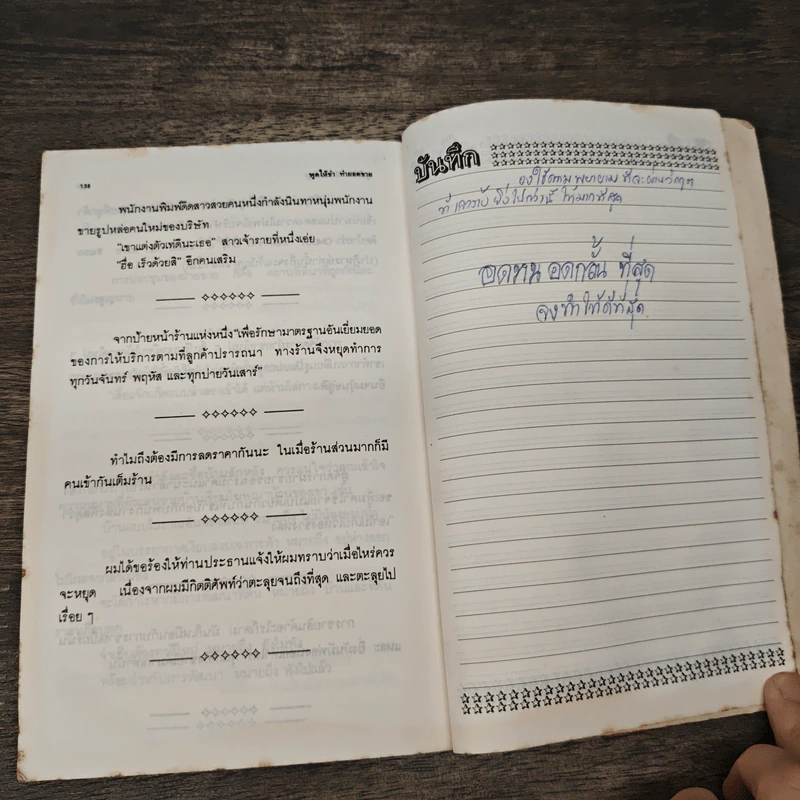 138
พูดให้ขำ ทำยอดขาย
พนักงานพิมพ์ดีดสาวสวยคนหนึ่งกำลังนินทาหนุ่มพนักงาน
ขายรูปหล่อคนใหม่ของบริษัท
"เขาแต่งตัวเท่ดีนะเธอ" สาวเจ้ารายที่หนึ่งเอ่ย
"ฮื่อ เร็วด้วยสิ" อีกคนเสริม
จากป้ายหน้าร้านแห่งหนึ่ง"เพื่อรักษามาตรฐานอันเยี่ยมยอด
ของการให้บริการตามที่ลูกค้าปรารถนา ทางร้านจึงหยุดทำการ
ทุกวันจันทร์ พฤหัส และทุกบ่ายวันเสาร์"
ทำไมถึงต้องมีการลดราคากันนะ ในเมื่อร้านส่วนมากก็มี
คนเข้ากันเต็มร้าน
ผมได้ขอร้องให้ท่านประธานแจ้งให้ผมทราบว่าเมื่อไหร่ควร
จะหยุด เนื่องจากผมมีกิตติศัพท์ว่าตะลุยจนถึงที่สุด และตะลุยไป
เรื่อย ๆ
บันทึก
จงใช้ความพยายาม ที่จะ
ยิ่งไปกว่านี้ ให้มากที่สุด
อดทน อดกลั้น ที่สุด
จงทำให้ดีที่สุด.